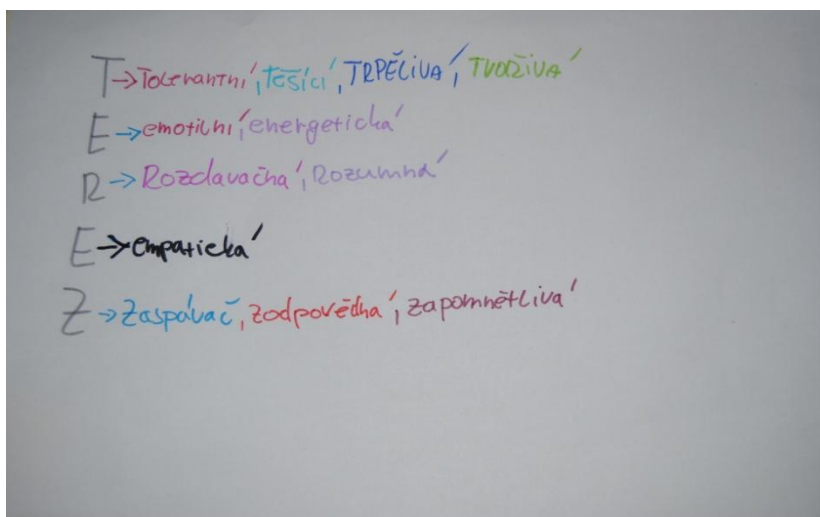 T→Tolerantní, Těšící, TRPĚLIVÁ, TVOŘIVÁ
E→emotilní, energetická
R→Rozdavačná, Rozumná
E→empatická
Z→Zaspávač, zodpovědná, zapomnětlivá